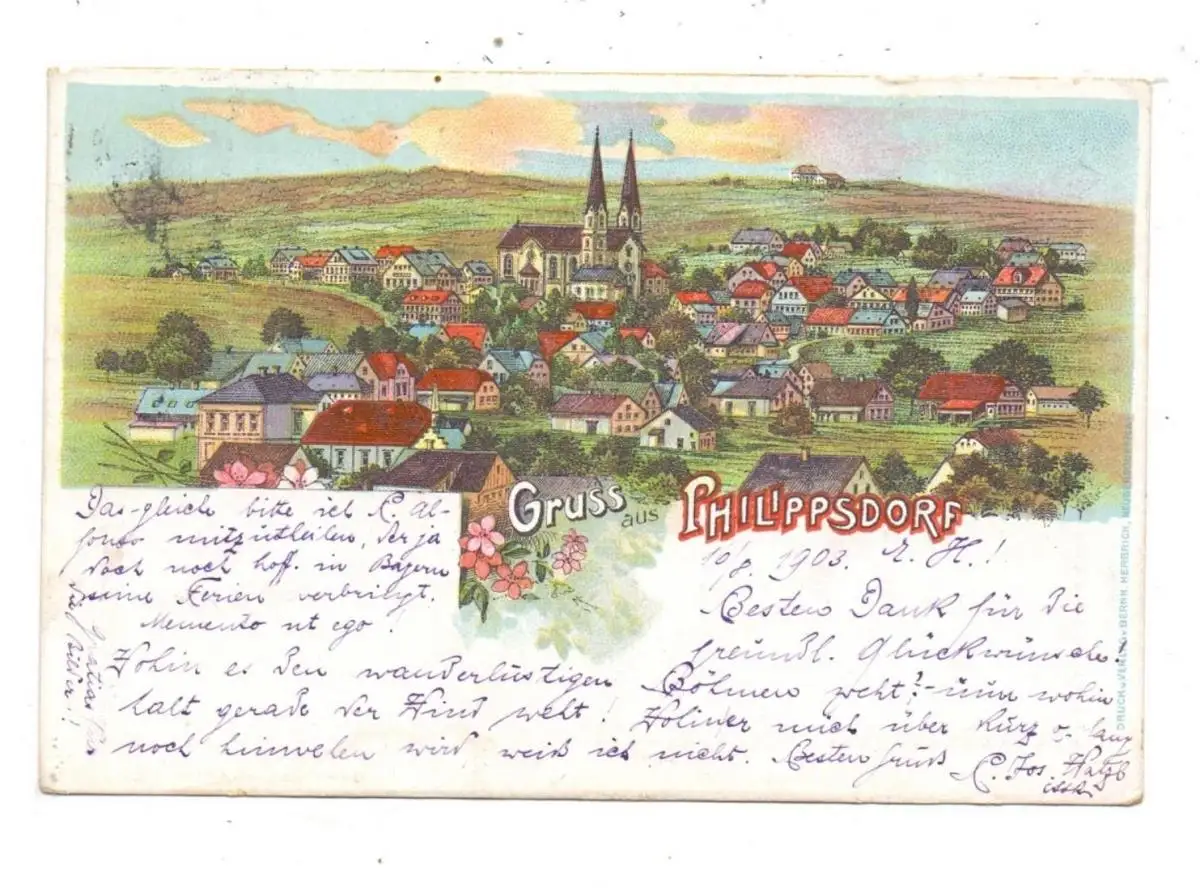 Gruss aus PHILIPPSDORF
10/8. 1903. E. H.!
Besten Dank für die
freundl. Glückwünsche.
Böhmen weht? - nun wohin
es den wanderlustigen
halt gerade der Wind weht! Wo mich über kurz o. lang
noch hinwehen wird, weiß ich nicht. Besten Gruß
P. Jos.
Das-gleiche bitte ich P. Al-
fonso mitzutheilen, der ja
doch noch hoff. in Bayern
seine Ferien verbringt.
Memento ut ego!
Gratias
Bilder!
DRUCK u. VERLAG v. BERNH. HERBRICH,